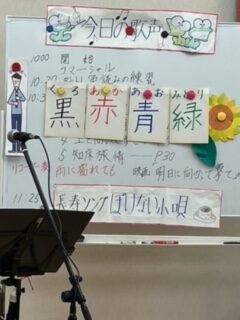 今日の歌声
1000 開始
コマーシャル
10:20 早口 言読みの練習
10:3
くろ あか あお みどり
黒 赤 青 緑
5 知床旅情 ―― P30
雨に濡れても 映画 明日に向って撃て
11:25 長寿ソング ぼけない小唄